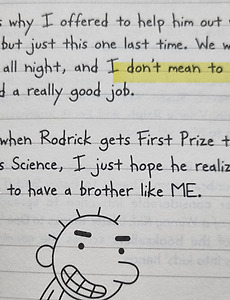 why I offered to help him out
but just this one last time. We w
all night, and I don't mean to
a really good job.
when Rodrick gets First Prize
Science, I just hope he realiz
to have a brother like ME.